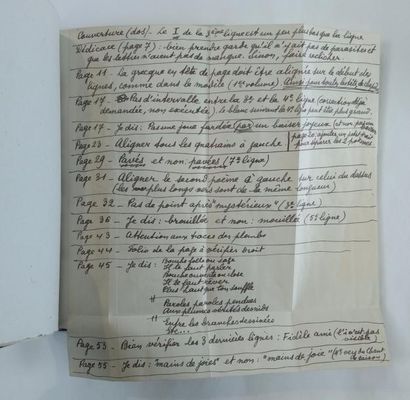 Couverture (dos) - Le I de la 3ème ligne est un peu plus bas que la ligne
Dédicace (page 7) : bien prendre garde qu'il n'y ait pas de parasites et
que les lettres n'aient pas de manque. Sinon, faire
Page 11 - La grecque en tête de page doit être alignée sur le début des
lignes, comme dans le modèle (1er volume). Ainsi pour toutes les têtes de
Page 17 - Pas d'intervalle entre la 3e et la 4e ligne (correction déjà
demandée, non exécutée), le blanc suivant la 4e ligne peut être plus grand.
Page 17 - Je dis : Pas une joue fardée (par) un baiser joyeux (et non,
Page 23 - Aligner tous les quatrains à gauche
page 20, ajouter un
pour séparer les 2 poèmes
Page 29 - Pavés et non : pavées (7e ligne)
Page 31 - Aligner le second poème à gauche sur celui du dessus
(les plus longs vers sont de la même longueur)
Page 32 - Pas de point après "mystérieux" (3e ligne)
Page 36 - Je dis : brouillée et non : mouillée (5e ligne)
Page 43 - Attention aux traces des plombs
Page 44 - Folio de la page à vérifier droit
Page 45 - Je dis : Bouche folle ou sage
Il te faut parler,
Bouche ouverte ou close
Il te faut rêver
Plus haut que ton souffle
# Paroles paroles pendues
Aux plumes vérités des nids
# Entre les branches dessinées
Page 53 - Bien vérifier les 3 dernières lignes : Fidèle ami (l'i n'est pas
visible)
Page 55 - Je dis : "mains de joies" et non : "mains de joie"